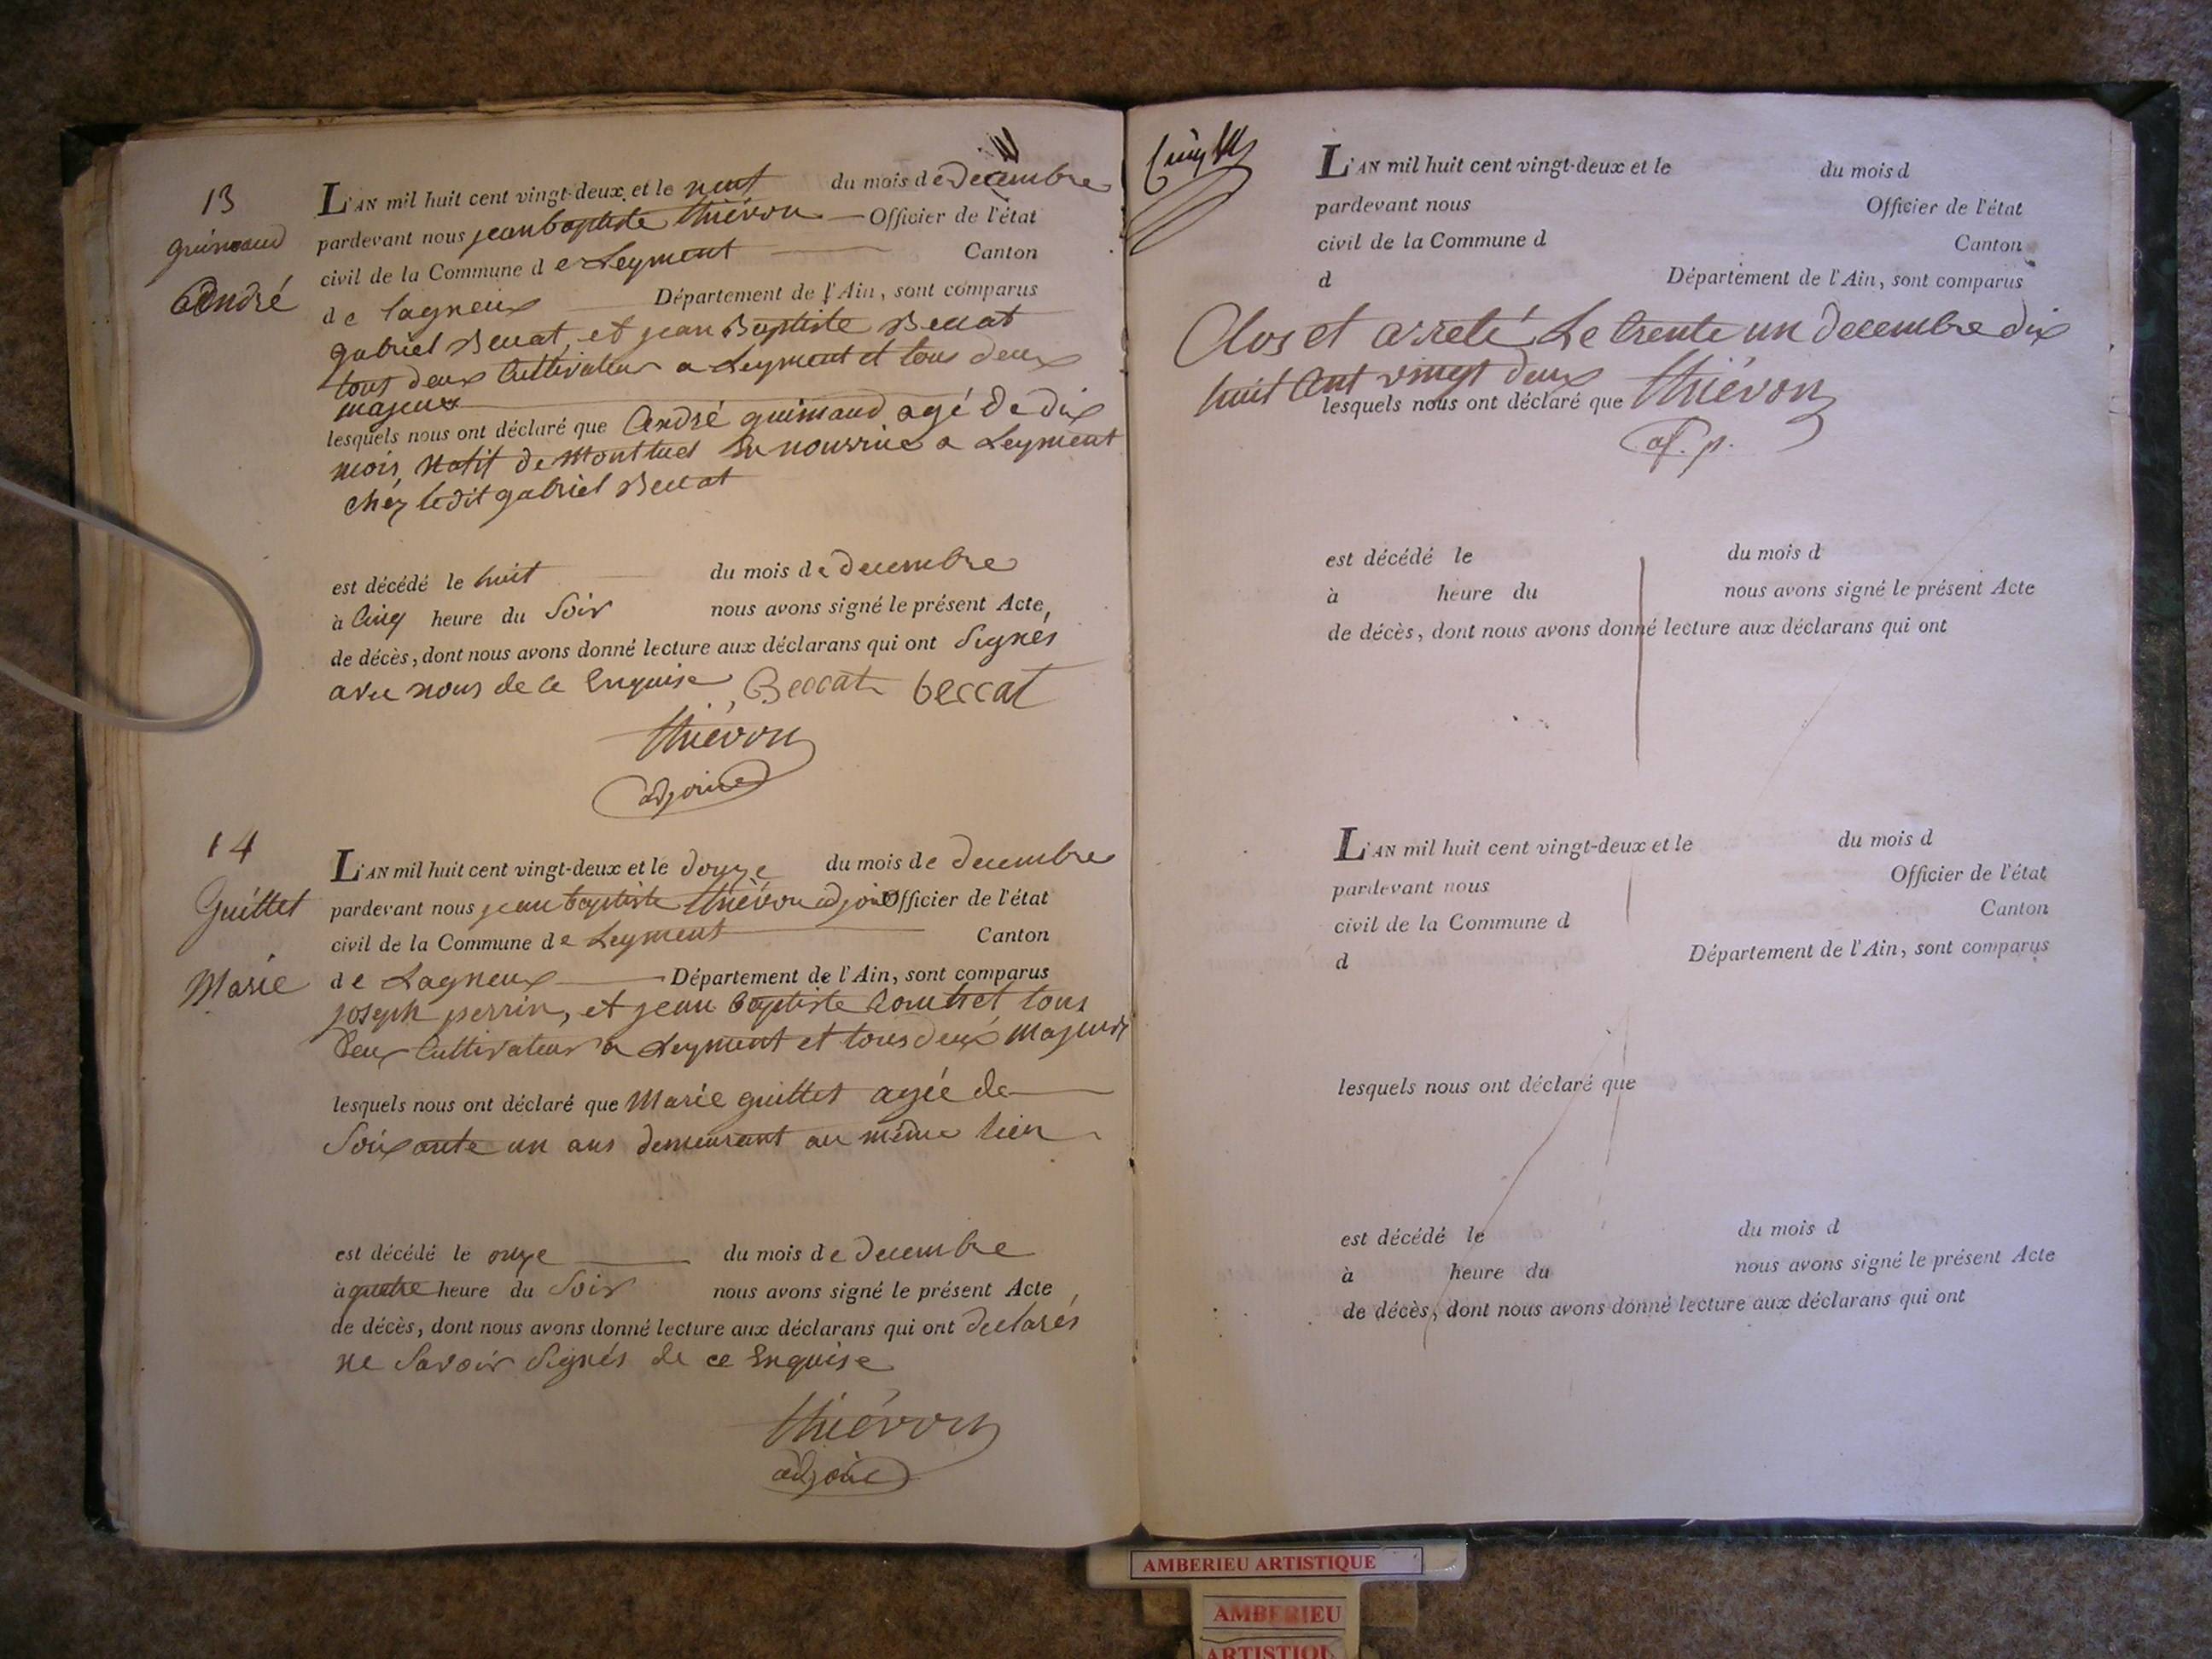 13
guimaud
André
L'AN mil huit cent vingt-deux et le neuf du mois de Decembre
pardevant nous jean baptiste thiévon Officier de l'état
civil de la Commune de Leyment Canton
de lagneux Département de l'Ain, sont comparus
gabriel Beccat, et jean Baptiste Beccat
tous deux Cultivateur a Leyment et tous deux
majeux
lesquels nous ont déclaré que André guimaud agé De dix
mois, Natif de Montluel En nourrice a Leyment
chéz ledit gabriel Beccat
est décédé le huit du mois de Decembre
à Cinq heure du Soir nous avons signé le présent Acte,
de décès, dont nous avons donné lecture aux déclarans qui ont Signés
avec nous de ce Enquise Beccat beccat
thiévon
adjoint
14
Guillet
Marie
L'AN mil huit cent vingt-deux et le douze du mois de decembre
pardevant nous jean baptiste thiévon adjoint Officier de l'état
civil de la Commune de Leyment Canton
de Lagneux Département de l'Ain, sont comparus
joseph perrin, et jean baptiste tous
Deux Cultivateur a Leyment et tous deux majeurs
lesquels nous ont déclaré que Marie guillet agée de
Soixante un ans demeurant au même lieu
est décédé le onze du mois de Decembre
à quatre heure du Soir nous avons signé le présent Acte,
de décès, dont nous avons donné lecture aux déclarans qui ont declarés
ne Savoir Signés de ce Enquise
thiévon
adjoint
L'AN mil huit cent vingt-deux et le du mois d
pardevant nous Officier de l'état
civil de la Commune d Canton
d Département de l'Ain, sont comparus
Clos et arreté Le trente un decembre dix
huit Cent vingt deux thiévon
lesquels nous ont déclaré que
af. p.
est décédé le du mois d
à heure du nous avons signé le présent Acte
de décès, dont nous avons donné lecture aux déclarans qui ont
L'AN mil huit cent vingt-deux et le du mois d
pardevant nous Officier de l'état
civil de la Commune d Canton
d Département de l'Ain, sont comparus
lesquels nous ont déclaré que
est décédé le du mois d
à heure du nous avons signé le présent Acte
de décès, dont nous avons donné lecture aux déclarans qui ont
AMBERIEU ARTISTIQUE
AMBERIEU